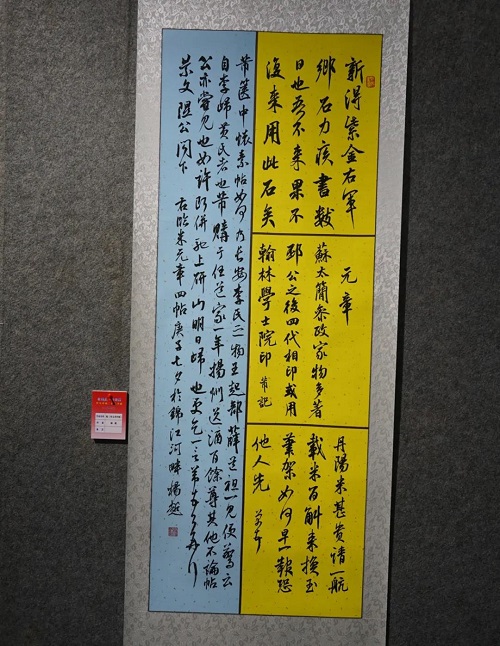 新得紫金右軍
鄉石力疾書數
日也吾不來果不
復來用此石矣
元章
蘇太簡參政家物多著
邳公之後四代相印或用
翰林學士院印 芾記
丹陽米甚貴請一航
載米百斛來換玉
筆架如何早一報恐
他人先 芾
芾篋中懷素帖如何乃長安李氏之物王起部薛道祖一見便驚云
自李歸黃氏者也芾購于任道家一年揚州送酒百餘尊其他不論帖
公亦嘗見也如許即併馳上研山明日歸也更乞一言芾頓首再拜
景文隰公閣下 右臨米元章四帖庚子七夕於錦江河畔楊